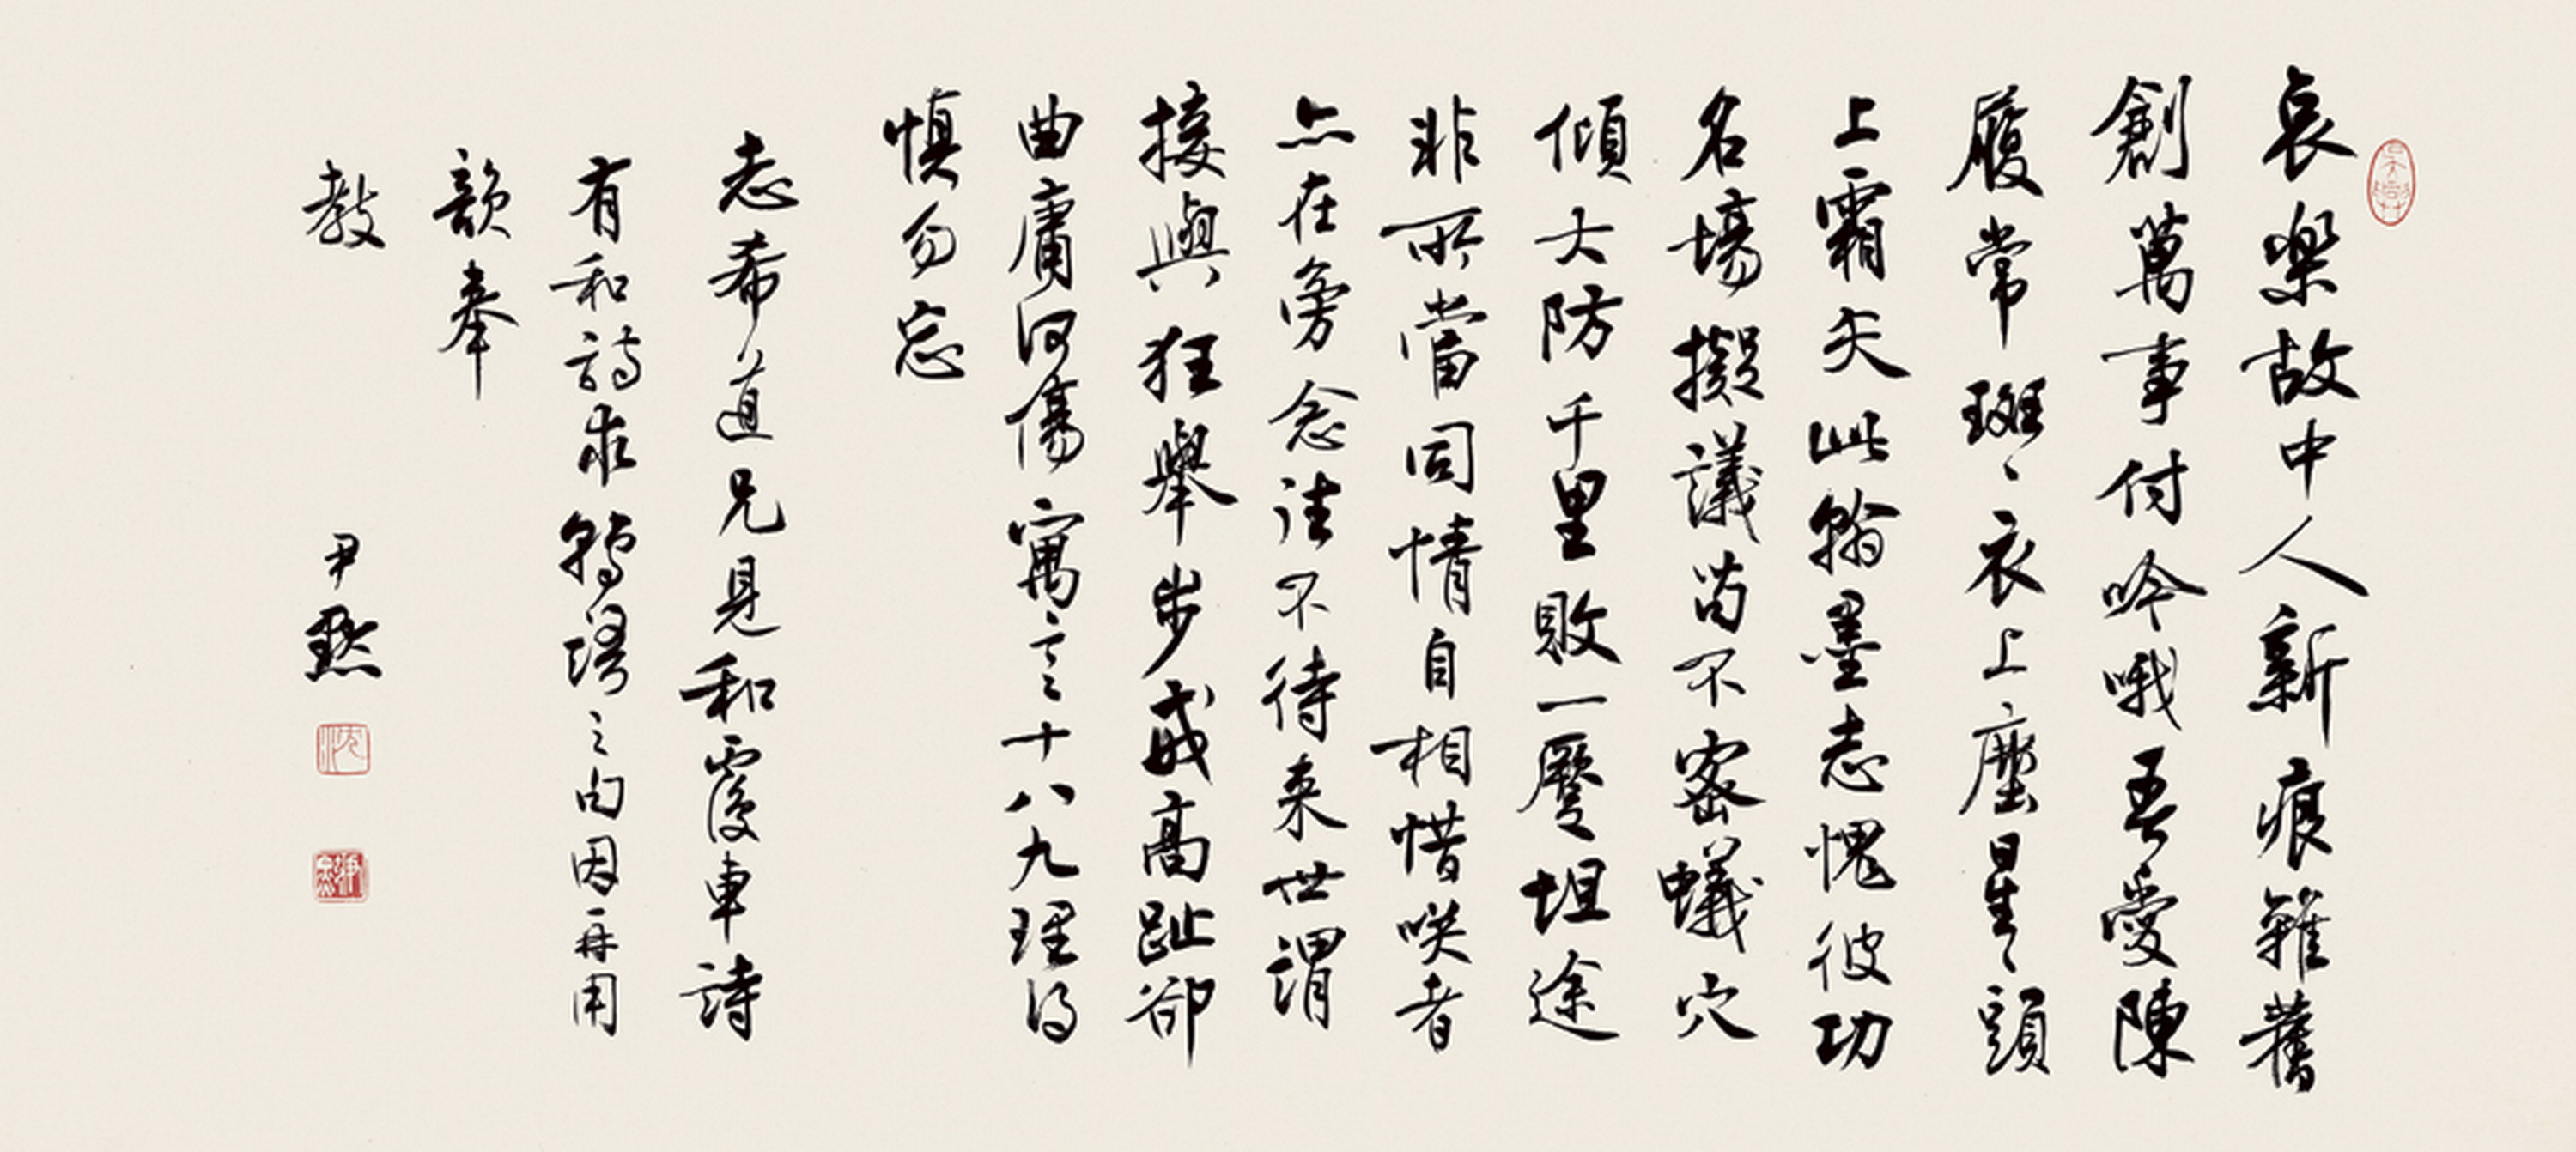 哀樂故中人新痕雜舊
創萬事付吟哦吾愛陳
履常斑〻衣上塵星〻頭
上霜矢此翰墨志愧彼功
名場擬議苟不密蟻穴
傾大防千里敗一蹷坦途
非所當同情自相惜咲者
亦在旁念往不待来世謂
接輿狂舉步戒高趾郤
曲庸何傷寓言十八九理得
慎勿忘
志希道兄見和覆車詩
有和詩求之句因再用
韻奉
教
尹默